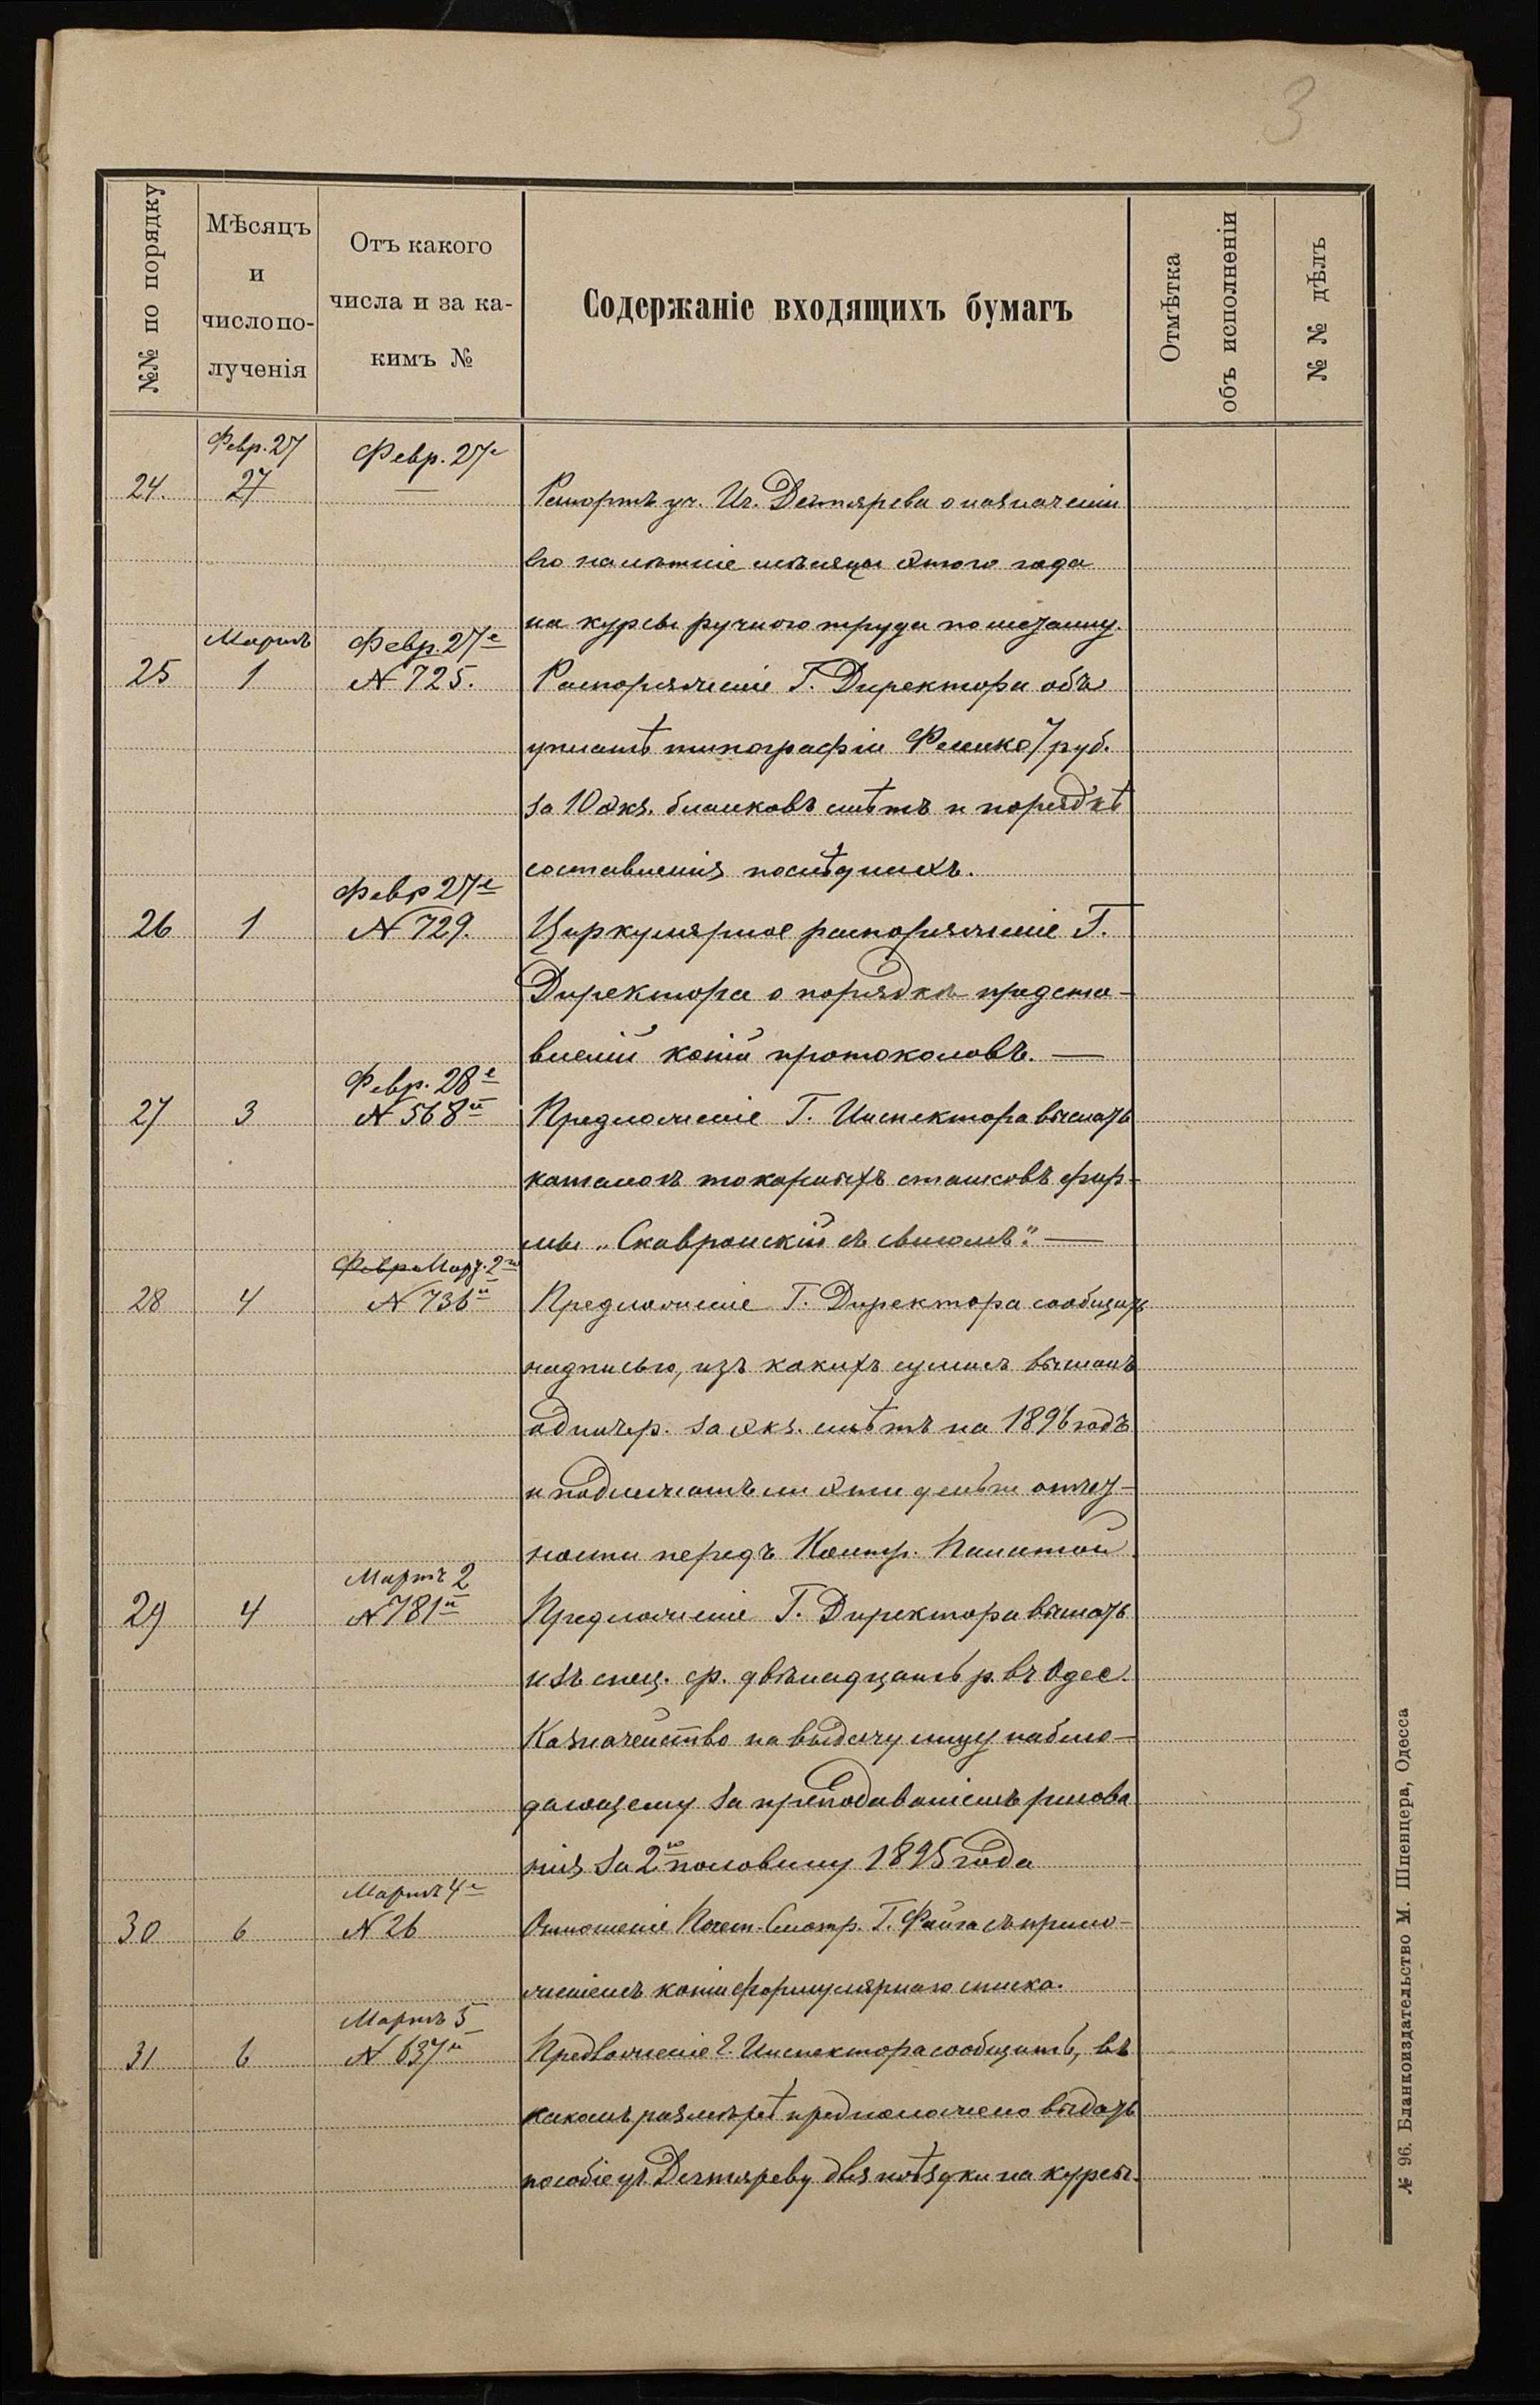 3
№№ по порядку
Мѣсяцъ
и
число по-
лученія
Отъ какого
числа и за ка-
кимъ №
Содержаніе входящихъ бумагъ
Отмѣтка
объ исполненіи
№ № дѣлъ
Февр. 27
Февр. 27е
24. 27 — Рапортъ уч. Иг. Дегтярева о назначеніи
его на лѣтніе мѣсяцы этого года
на курсы ручного труда по металлу.
Мартъ Февр. 27е
25 1 № 725. Распоряженіе Г. Директора объ
уплатѣ типографіи Фесенко 7 руб.
за 10 экз. бланковъ смѣтъ и порядкѣ
составленія послѣднихъ.
Февр 27е
26 1 № 729. Циркулярное распоряженіе Г.
Директора о порядкѣ предста-
вленій копій протоколовъ. —
Февр. 28е
27 3 № 568й Предложеніе Г. Инспектора выслать
каталогъ токарныхъ станковъ фир-
мы „Скавронскій съ сыномъ". —
Февр Март. 2го
28 4 № 736й Предложеніе Г. Директора сообщить
надписью, изъ какихъ суммъ высланъ
одинъ р. за экз. смѣтъ на 1896 годъ
и подлежатъ ли эти деньги отчет-
ности передъ Контр. Палатой.
Мартъ 2
29 4 № 781й Предложеніе Г. Директора выслать
изъ спец. ср. двѣнадцать р. въ Одес.
Казначейство на выдачу лицу наблю-
дающему за преподаваніемъ рисова
нія за 2ю половину 1895 года
Мартъ 4е
30 6 № 26 Отношеніе Почет. Смотр. Г. Файга съ прило-
женіемъ копіи формулярнаго списка.
Мартъ 5
31 6 № 637й Предложеніе Г. Инспектора сообщить, въ
какомъ размѣрѣ предположено выдать
пособіе уч. Дегтяреву для поѣздки на курсы.
№ 96. Бланкоиздательство М. Шпенцера, Одесса